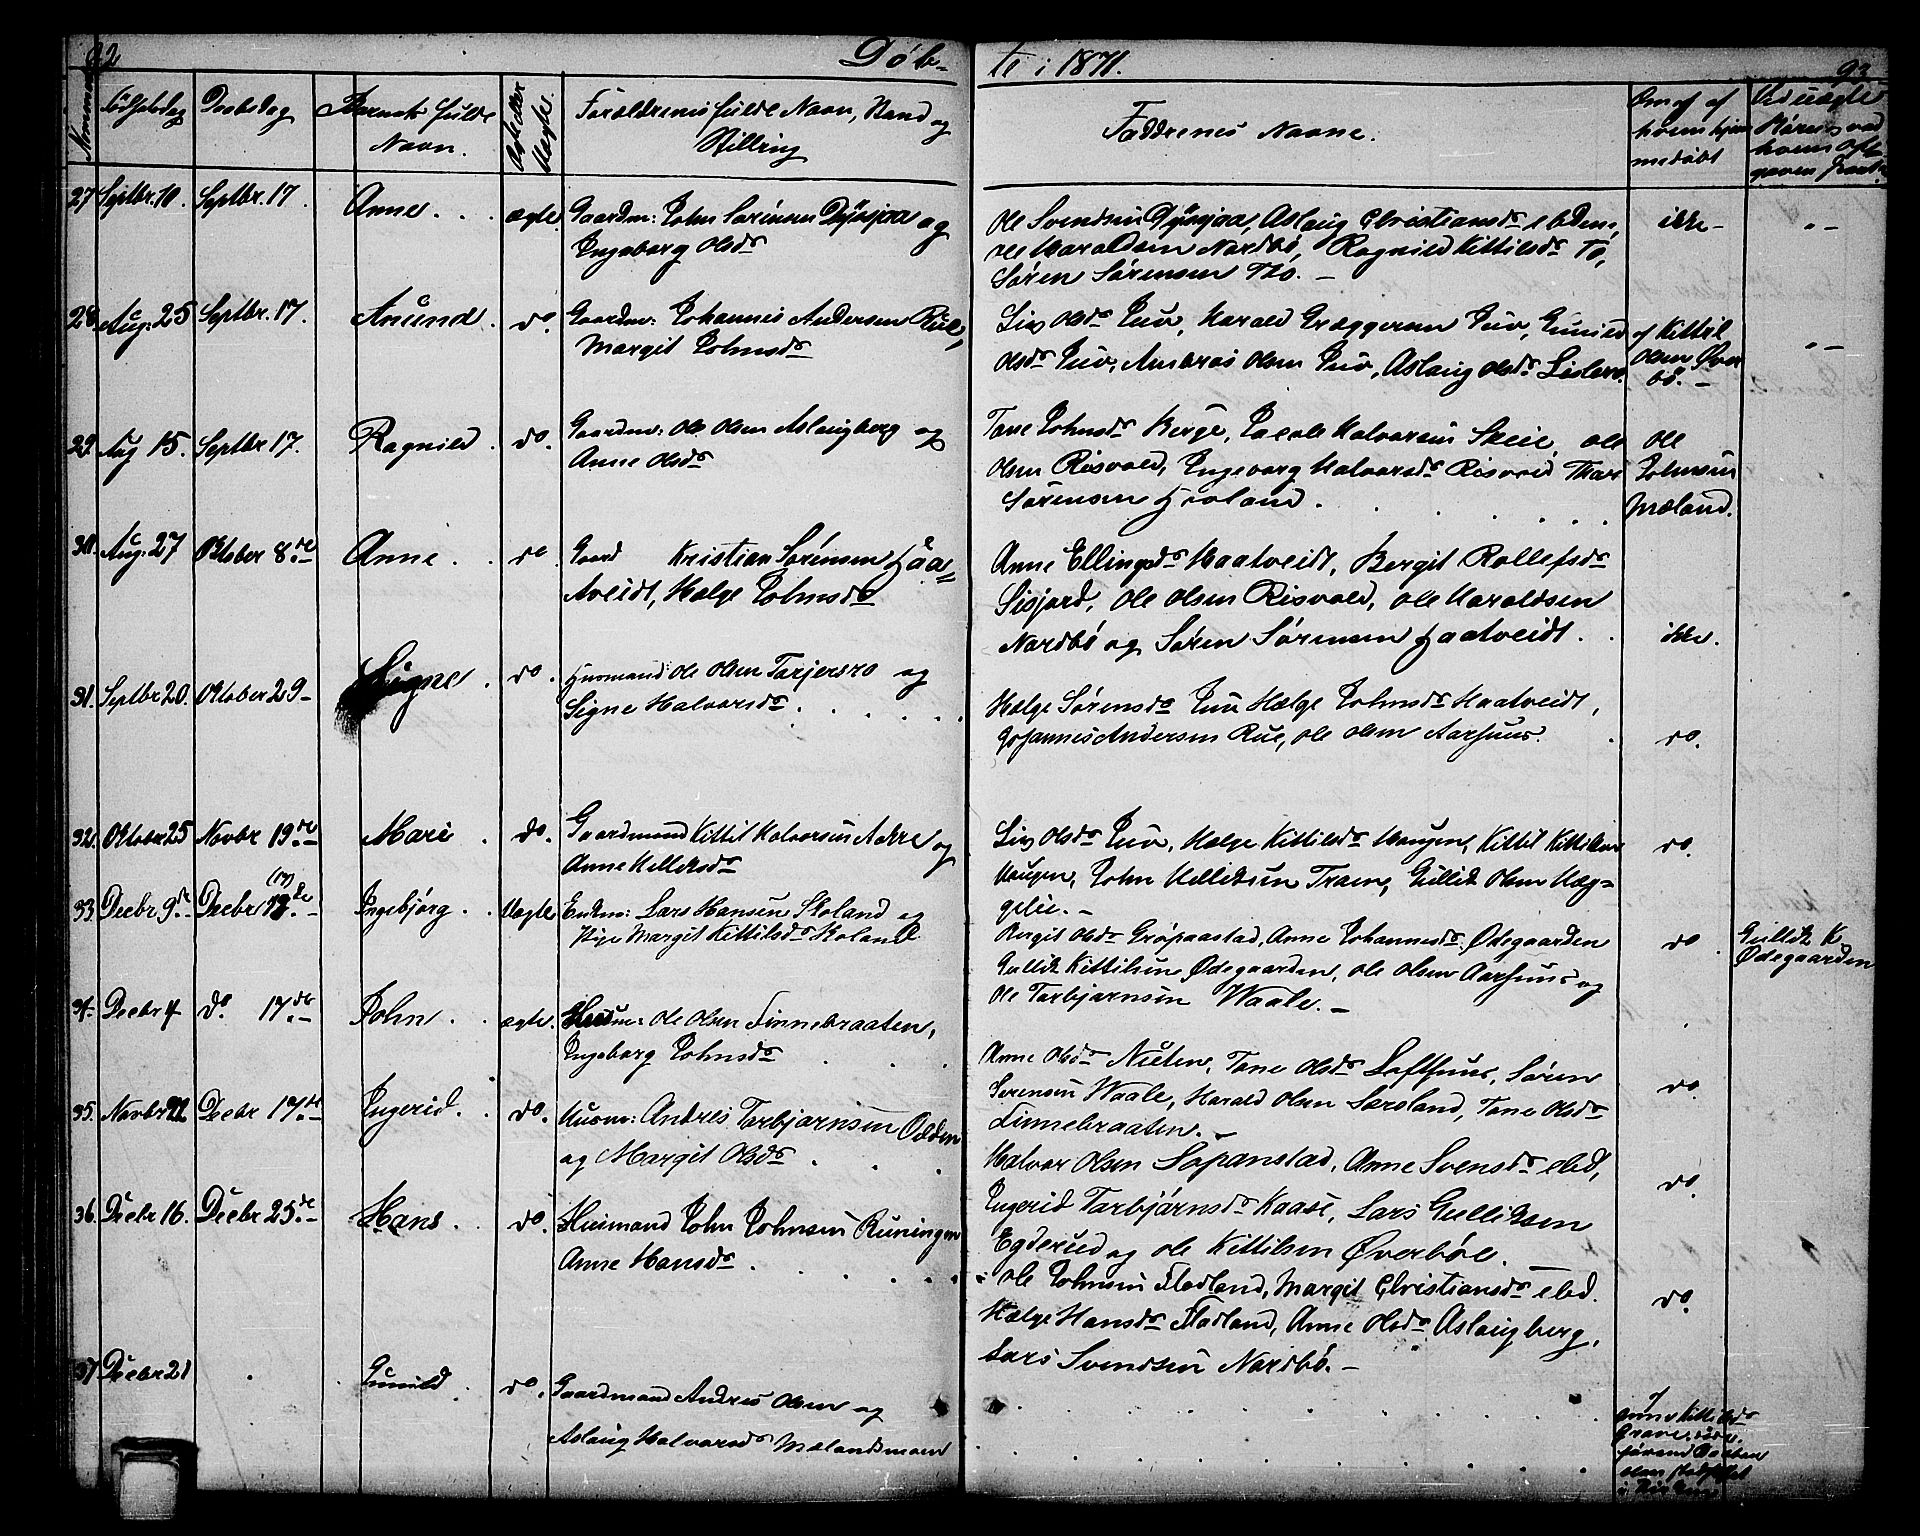 92
Døb-
te i 1871.
93
Nummer
Fødselsdag
Daabsdag
Barnets fulde
Navn.
Ægte eller
Uægte.
Forældrenes fulde Navn, Stand og
Stilling
Faddrenes Navne.
Om og af
hvem hjem
medøbt
Ved uægte
hvem
27 Septbr. 10. Septbr. 17. Anne . . ægte Gaardm: John Sørensen Dÿrsjaa og
Ingeborg Olsdr
Ole Svendsen Dÿrsjaa, Aslaug Christiansdr ibdm,
Ole Haraldsen Nordbø, Ragnild Kittilsdr To,
Søren Sørensen Tho. -
ikke -
" -
28. Aug: 25 Septbr. 17. Anund . do. Gaardm: Johannes Andersen Rue,
Margit Johnsdr
Liv Olsdr Juv, Harald Græggersen Juv, Gunild
Olsdr Juv, Ambros Olsen Juv, Aslaug Olsdr
af Kittil
Olsen Øver
bö. -
" -
29. Aug 15. Septbr 17. Ragnild . do. Gaardm: Ole Olsen Aslaugberg og
Anne Olsdr
Tone Johnsdr Berge, Halvorsen Skeie, Ole
Olsen Risvold, Ingeborg Halvorsdr Risvold Thor
Sørensen Hovland .
Ole
Johnsen
Mæland.
30. Aug. 27 Oktober 8.de Anne . do Gaard Kristian Sørensen Haa=
tveidt, Hælge Johnsdr
Anne Ellingsdr Haatveidt, Bergit Rollefsdr
Ole Olsen Risvold, Ole Haraldsen
Nordbö og Søren Sørensen Haatveidt .
ikke.
31. Septbr 20. Oktober 29- Signe . do. Husmand Ole Olsen Tarjersro og
Signe Halvorsdr .
Hælge Sørensdr Juv Hælge Johnsdr Haatveidt,
Johannes Andersen Rue, Ole Olsen Aarhuus.
do.
32. Oktober 25 Novbr 19de Mari . do. Gaardmand Kittil Halvorsen Aakre og
Anne Kittilsdr
Liv Olsdr Juv, Hælge Kittilsdr Haugen, Kittil Kittilsen
Haugen, John Traen, Gullik Olsen Hæg=
gelie. -
do.
33 Decbr 9de Decbr (17) de Ingebjørg . . Uægte Enkm: Lars Hansen Skoland og
Pige Margit Kittilsdr Skoland
Bergit Olsdr Gröpaastad, Anne Johannesdr Ødegaarden
Gullik Kittilsen Ødegaarden, Ole Olsen Aarhuus og
Ole Tarbjørnsen Waale. -
do
Gullik K.
Ødegaarden
34- Decbr 4 do. 17.de John . . ægte. Husm: Ole Olsen Finnebraaten,
Ingeborg Johnsdr
Anne Olsdr Nuten, Tone Olsdr Lofthuus, Søren
Sorensen Waale, Harald Olsen Tone Olsdr
Finnebraaten. -
do.
35. Novbr Decbr 17.de Ingerid. . do. Husm: Andres Tarbjørnsen Odden
og Margit Olsdr .
Halvor Olsen Anne Svensdr ebd,
Ingerid Tarbjörnsdr Kaase, Lars Gulliksen
Egderud og Ole Kittilsen Øverböe.
do.
36. Decbr 16. Decbr 25.de Hans . . do. Husmand John Johnsen Runingen
Anne Hansdr .
Ole Johnsen Flodland, Margit Christiansdr ebd.
Hælge Hansdr Flodland, Anne Olsdr Aslaugberg,
Lars Svendsen Nordbö. -
do.
37 Decbr 21 . Gunild . do. Gaardmand Andres Olsen og
Aslaug Halvorsdr Mælandsmoen
Anne Kittilsdr
Grave, døde
førend Daaben